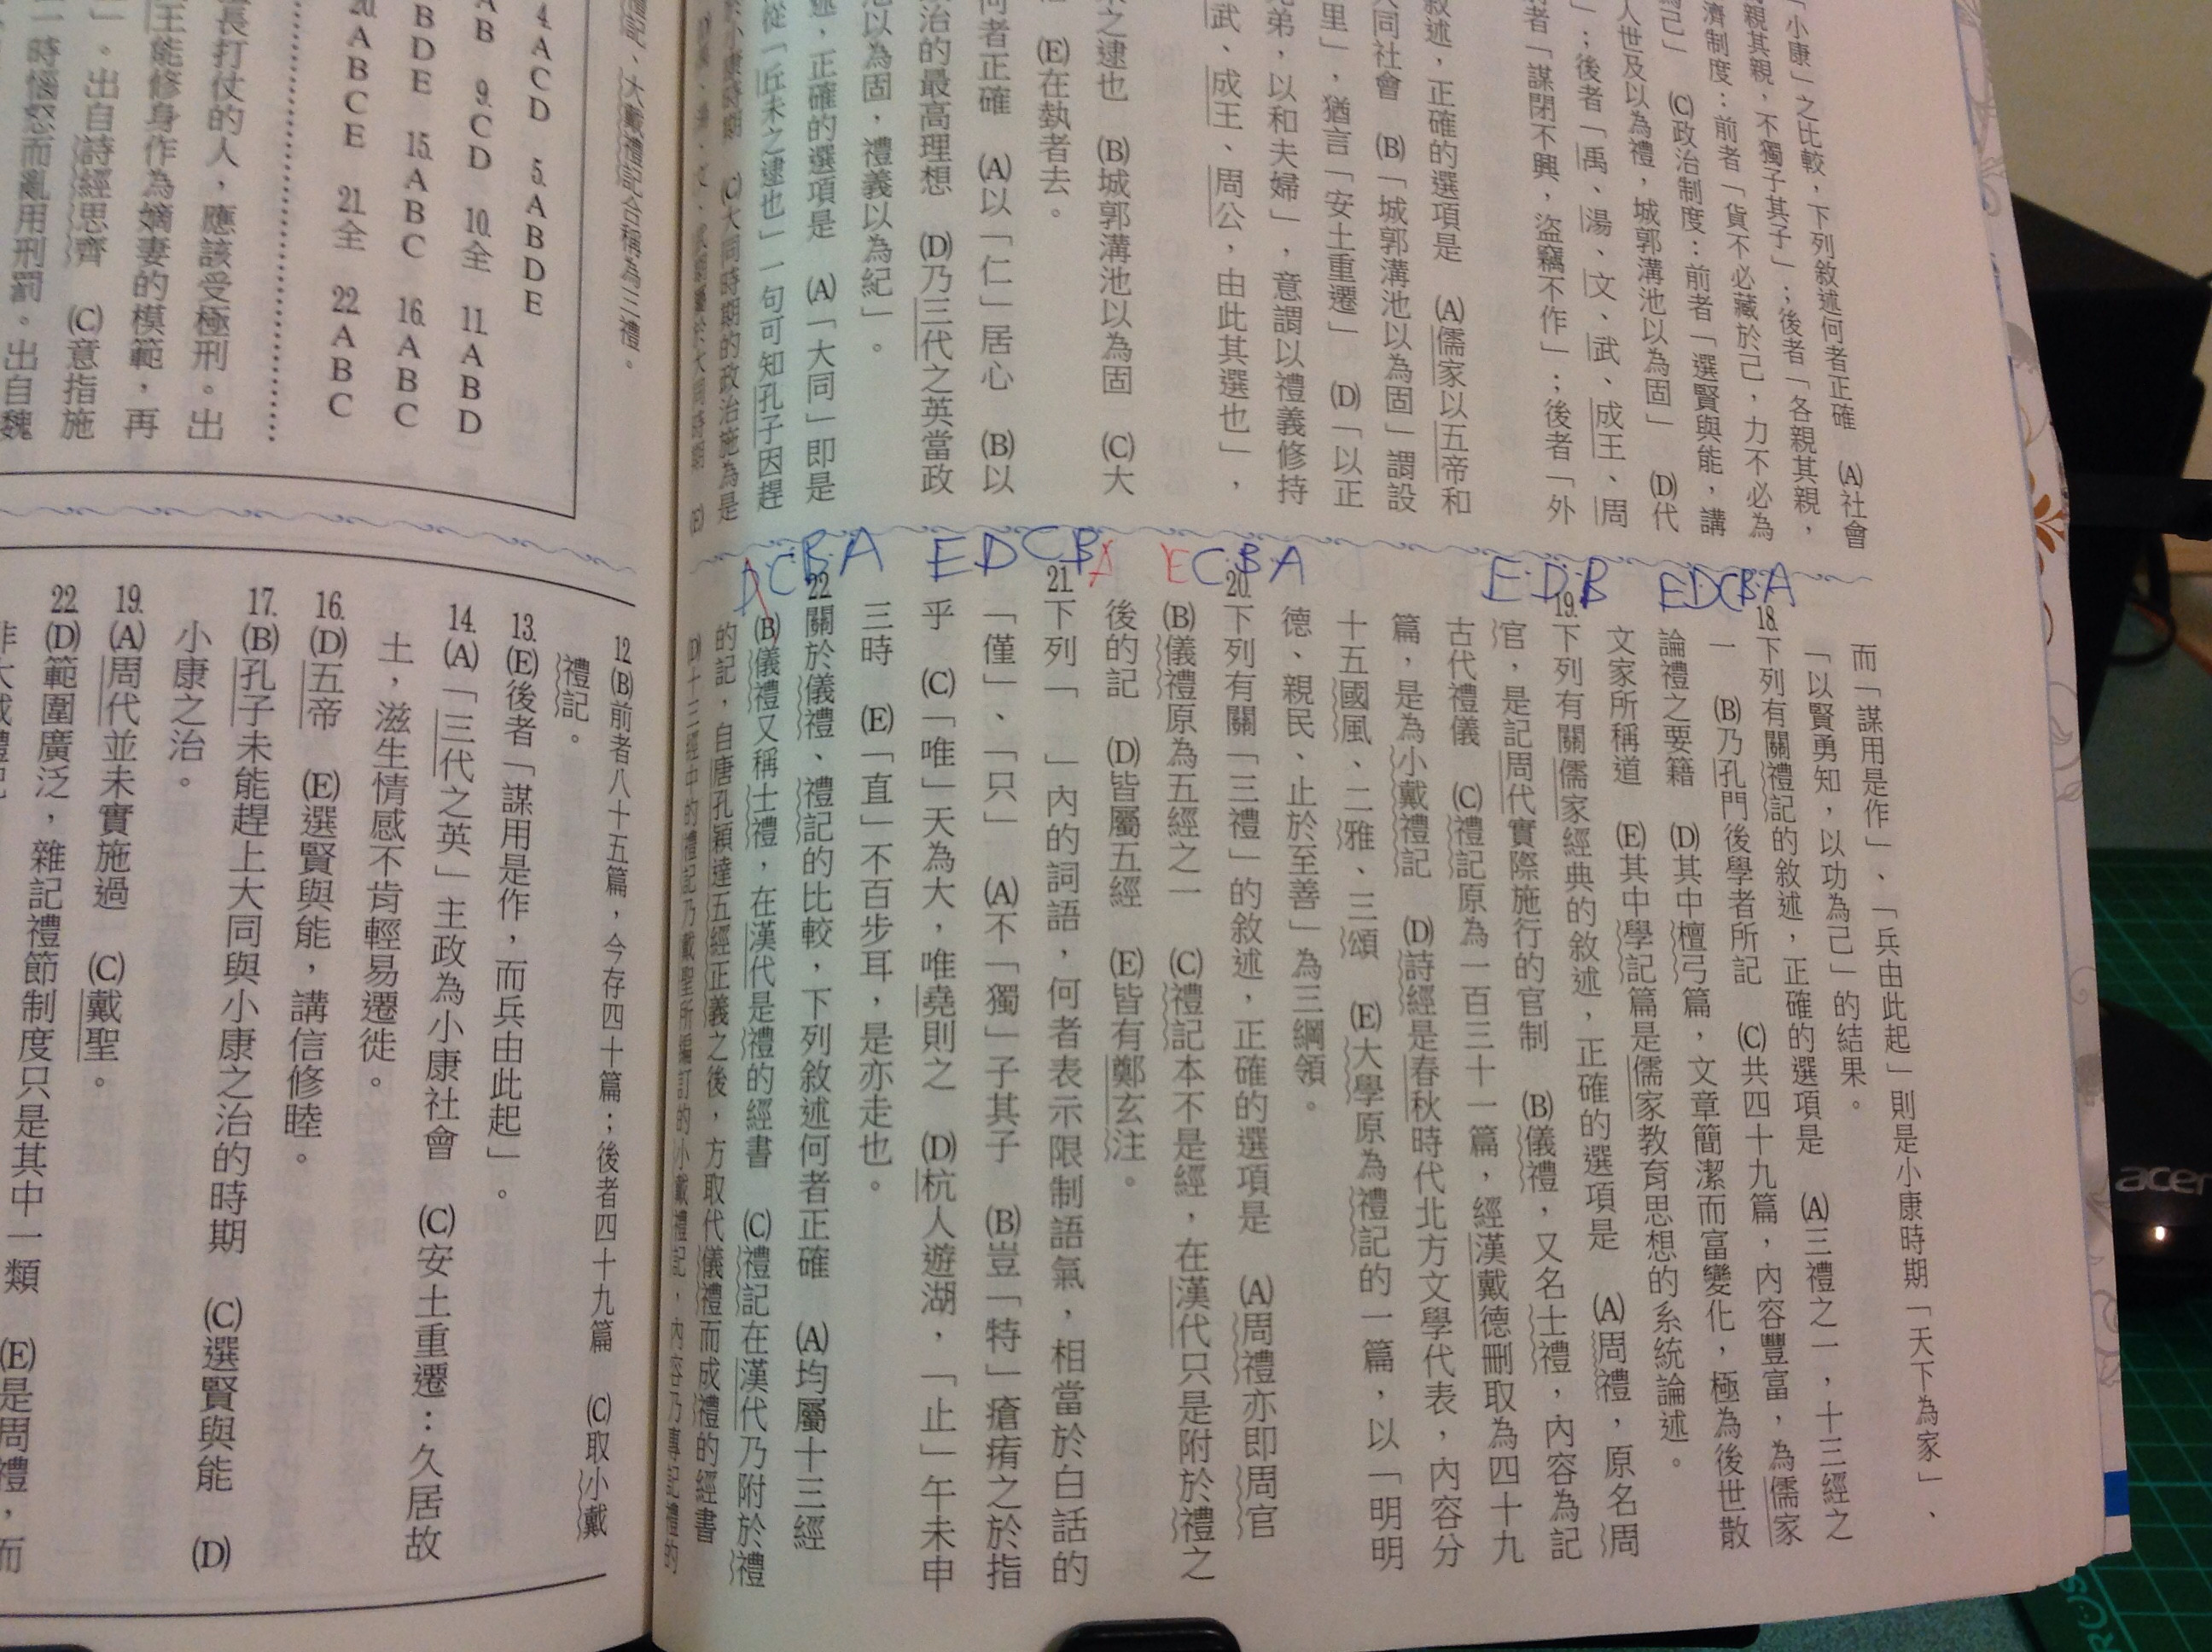 「小康」之比較，下列敘述何者正確　(A)社會
親其親，不獨子其子」；後者「各親其親，
濟制度：前者「貨不必藏於己，力不必為
為己」　(C)政治制度：前者「選賢與能，講
人世及以為禮，城郭溝池以為固」　(D)代
」；後者「禹、湯、文、武、成王、周
者「謀閉不興，盜竊不作」；後者「外
敘述，正確的選項是　(A)儒家以五帝和
大同社會　(B)「城郭溝池以為固」謂設
里」，猶言「安土重遷」　(D)「以正
兄弟，以和夫婦」，意謂以禮義修持
武、成王、周公，由此其選也」，
之逮也　(B)城郭溝池以為固　(C)大
(E)在執者去。
何者正確　(A)以「仁」居心　(B)以
治的最高理想　(D)乃三代之英當政
以為固，禮義以為紀」。
述，正確的選項是　(A)「大同」即是
從「丘未之逮也」一句可知孔子因趕
(C)大同時期的政治施為是
(E)
EDCBA
E.D.B
ECBA
EDCBA
DCBA
而「謀用是作」、「兵由此起」則是小康時期「天下為家」、
「以賢勇知，以功為己」的結果。
18.下列有關禮記的敘述，正確的選項是　(A)三禮之一，十三經之
一　(B)乃孔門後學者所記　(C)共四十九篇，內容豐富，為儒家
論禮之要籍　(D)其中檀弓篇，文章簡潔而富變化，極為後世散
文家所稱道　(E)其中學記篇是儒家教育思想的系統論述。
19.下列有關儒家經典的敘述，正確的選項是　(A)周禮，原名周
官，是記周代實際施行的官制　(B)儀禮，又名士禮，內容為記
古代禮儀　(C)禮記原為一百三十一篇，經漢戴德刪取為四十九
篇，是為小戴禮記　(D)詩經是春秋時代北方文學代表，內容分
十五國風、二雅、三頌　(E)大學原為禮記的一篇，以「明明
德、親民、止於至善」為三綱領。
20.下列有關「三禮」的敘述，正確的選項是　(A)周禮亦即周官
(B)儀禮原為五經之一　(C)禮記本不是經，在漢代只是附於禮之
後的記　(D)皆屬五經　(E)皆有鄭玄注。
21.下列「　」內的詞語，何者表示限制語氣，相當於白話的
「僅」、「只」　(A)不「獨」子其子　(B)豈「特」瘡痏之於指
乎　(C)「唯」天為大，唯堯則之　(D)杭人遊湖，「止」午未申
三時　(E)「直」不百步耳，是亦走也。
22.關於儀禮、禮記的比較，下列敘述何者正確　(A)均屬十三經
(B)儀禮又稱士禮，在漢代是禮的經書　(C)禮記在漢代乃附於禮
的記，自唐孔穎達五經正義之後，方取代儀禮而成禮的經書
(D)十三經中的禮記乃戴聖所編訂的小戴禮記，內容乃專記禮的
禮記、大戴禮記合稱為三禮。
4.ACD　5.ABDE
AB　9.CD　10.全　11.ABD
BDE　15.ABC　16.ABC
20.ABCE　21.全　22.ABC
長打仗的人，應該受極刑。出
王能修身作為嫡妻的模範，再
」。出自詩經思齊　(C)意指施
一時惱怒而亂用刑罰。出自魏
12.(B)前者八十五篇，今存四十篇；後者四十九篇　(C)取小戴
禮記。
13.(E)後者「謀用是作，而兵由此起」。
14.(A)「三代之英」主政為小康社會　(C)安土重遷：久居故
土，滋生情感不肯輕易遷徙。
16.(D)五帝　(E)選賢與能，講信修睦。
17.(B)孔子未能趕上大同與小康之治的時期　(C)選賢與能　(D)
小康之治。
19.(A)周代並未實施過　(C)戴聖。
22.(D)範圍廣泛，雜記禮節制度只是其中一類　(E)是周禮，而
acer